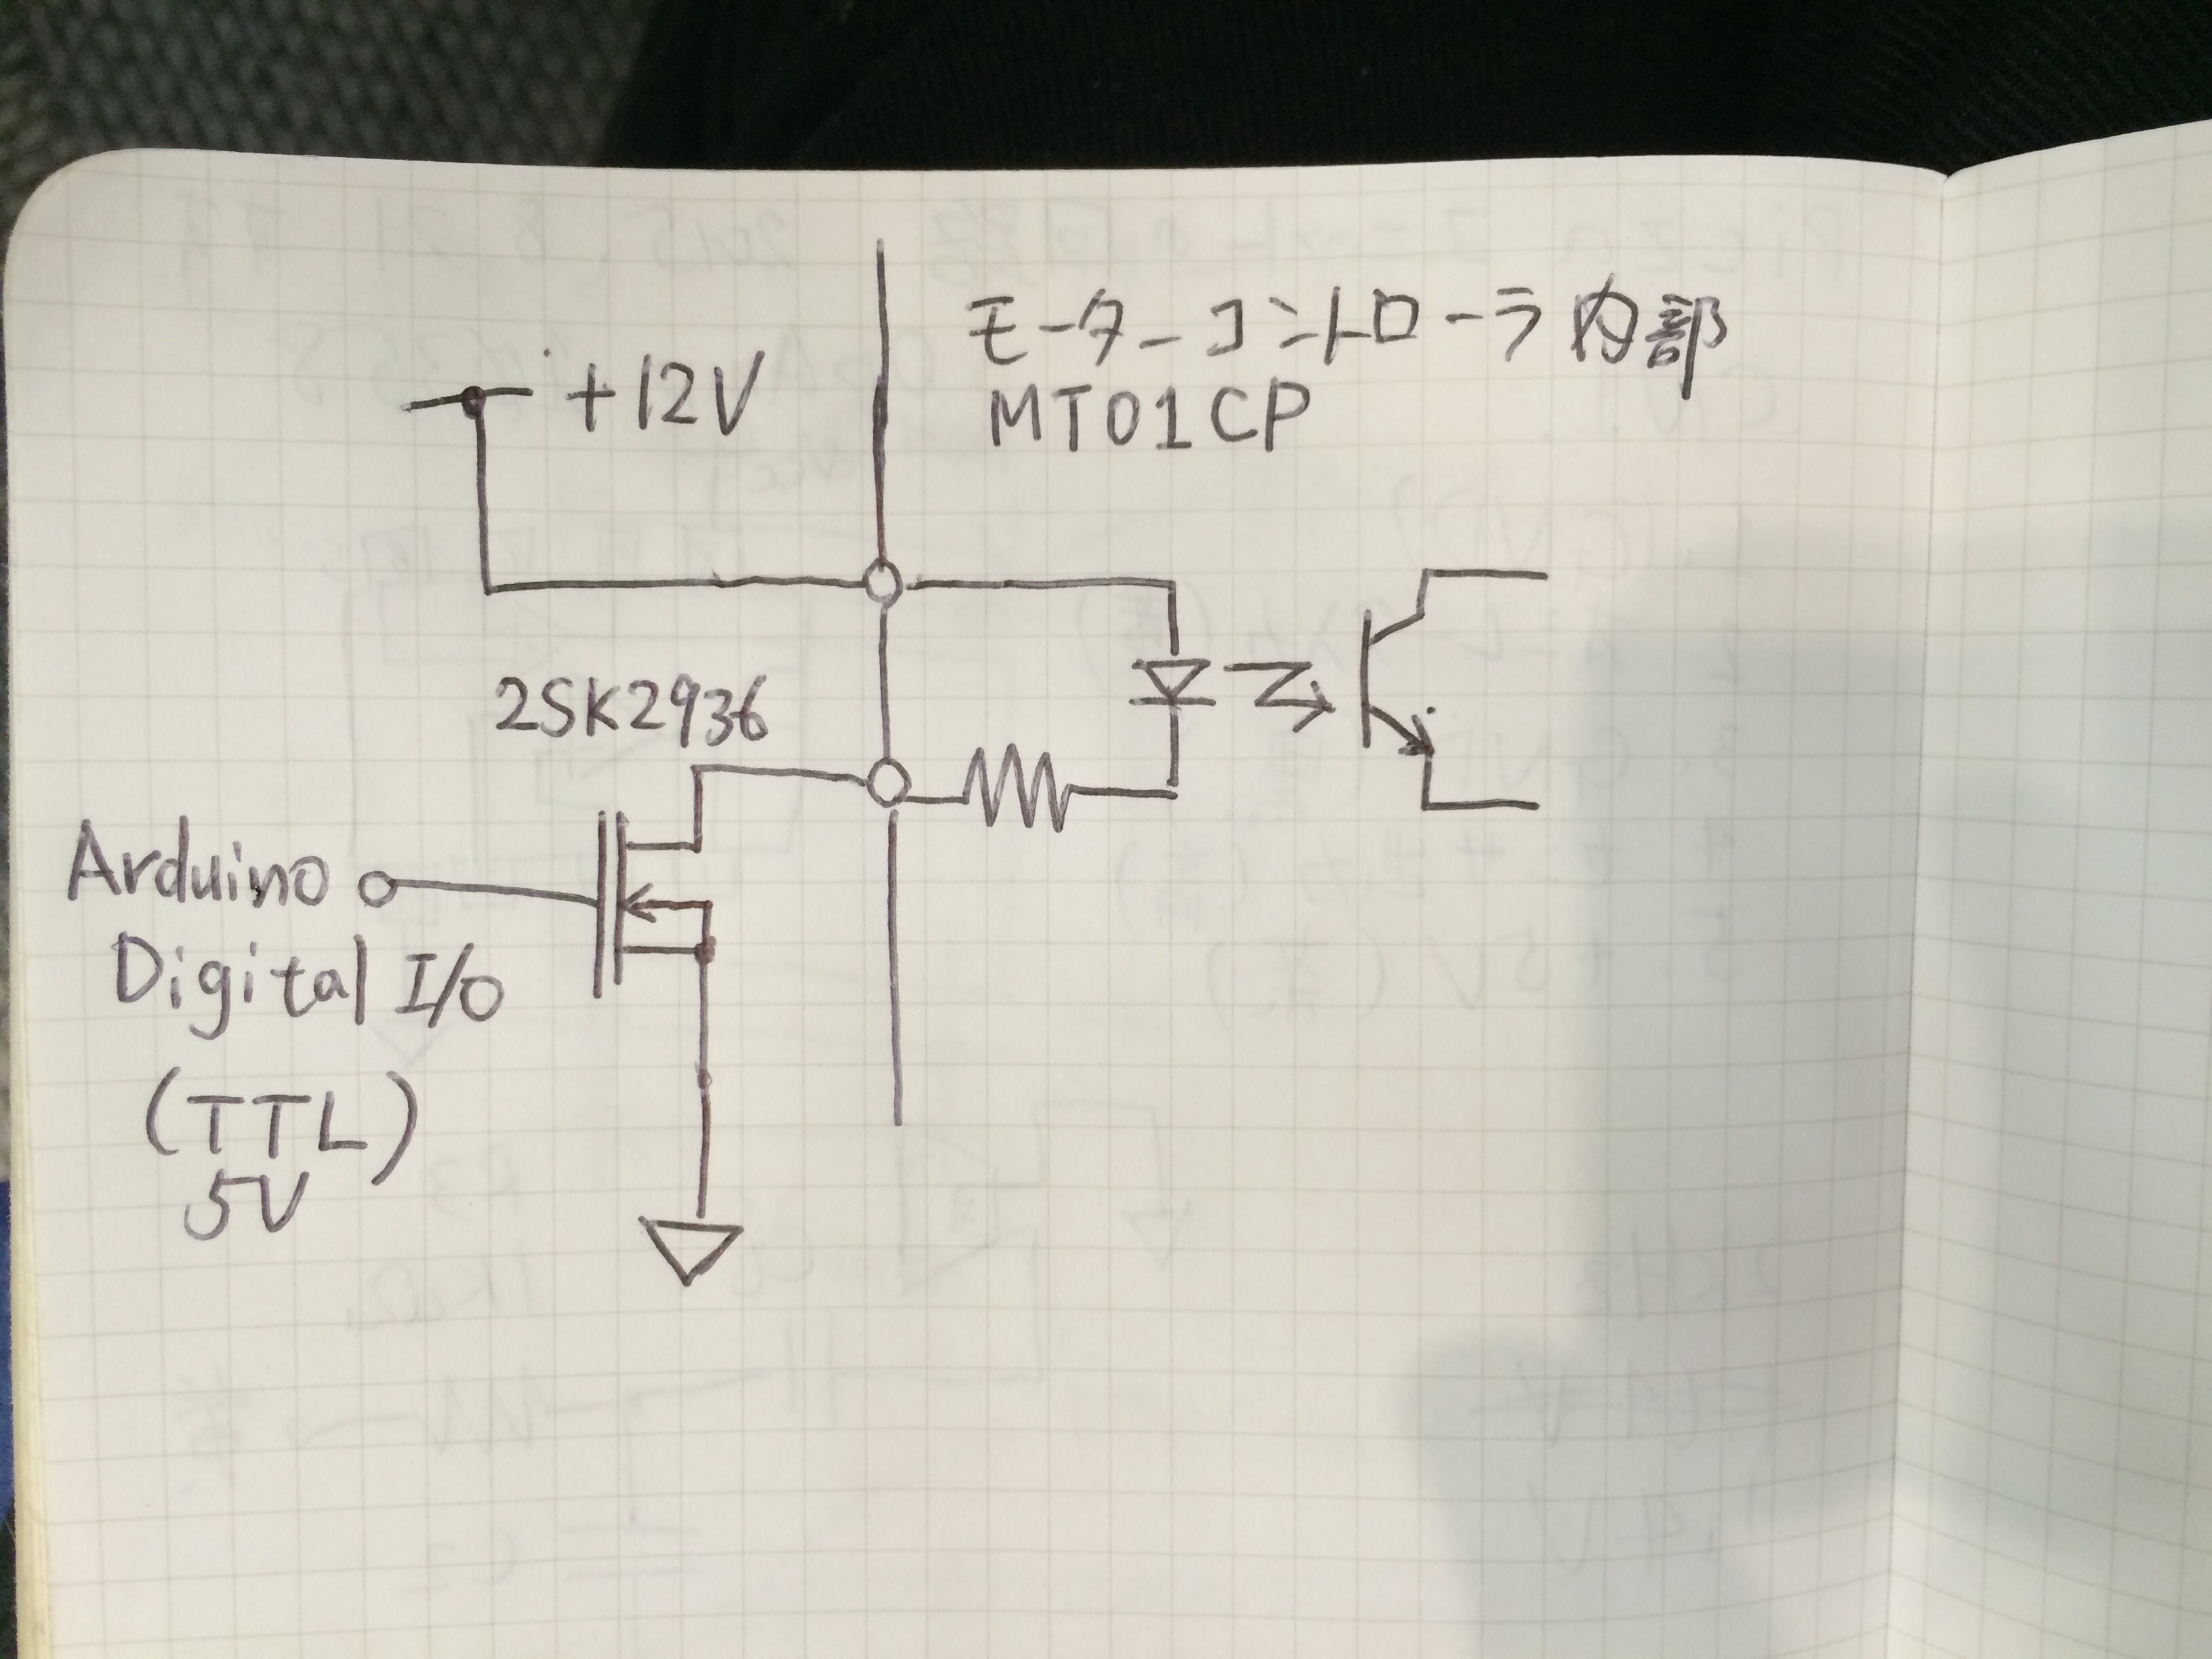 モーターコントローラ内部
MT01CP
+12V
2SK2936
Arduino
Digital I/O
(TTL)
5V